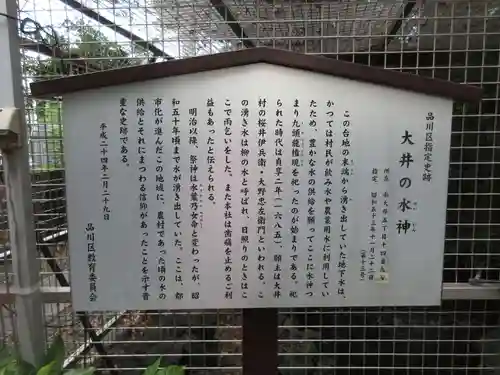 品川区指定史跡
大井の水神
指定 昭和五十三年十一月二十二日
この台地の末端から湧き出していた地下水は、
かつては村民が飲み水や農業用水に利用してい
たため、豊かな水の供給を願ってここに水神つ
まり九頭龍権現を祀ったのが始まりである。祀
られた時代は貞享二年（一六八五）、願主は大井
村の桜井伊兵衛・大野忠左衛門といわれる。こ
の湧き水は柳の水と呼ばれ、日照りのときはこ
こで雨乞いをした。また本社は歯痛を止めるご利
益もあったと伝えられる。
明治以降、祭神は水葉乃女命と変わったが、昭
和五十年頃まで水が湧き出していた。ここは、都
市化が進んだこの地域に、農村であった頃の水の
供給とそれにまつわる信仰があったことを示す貴
重な史跡である。
平成二十四年二月二十九日
品川区教育委員会